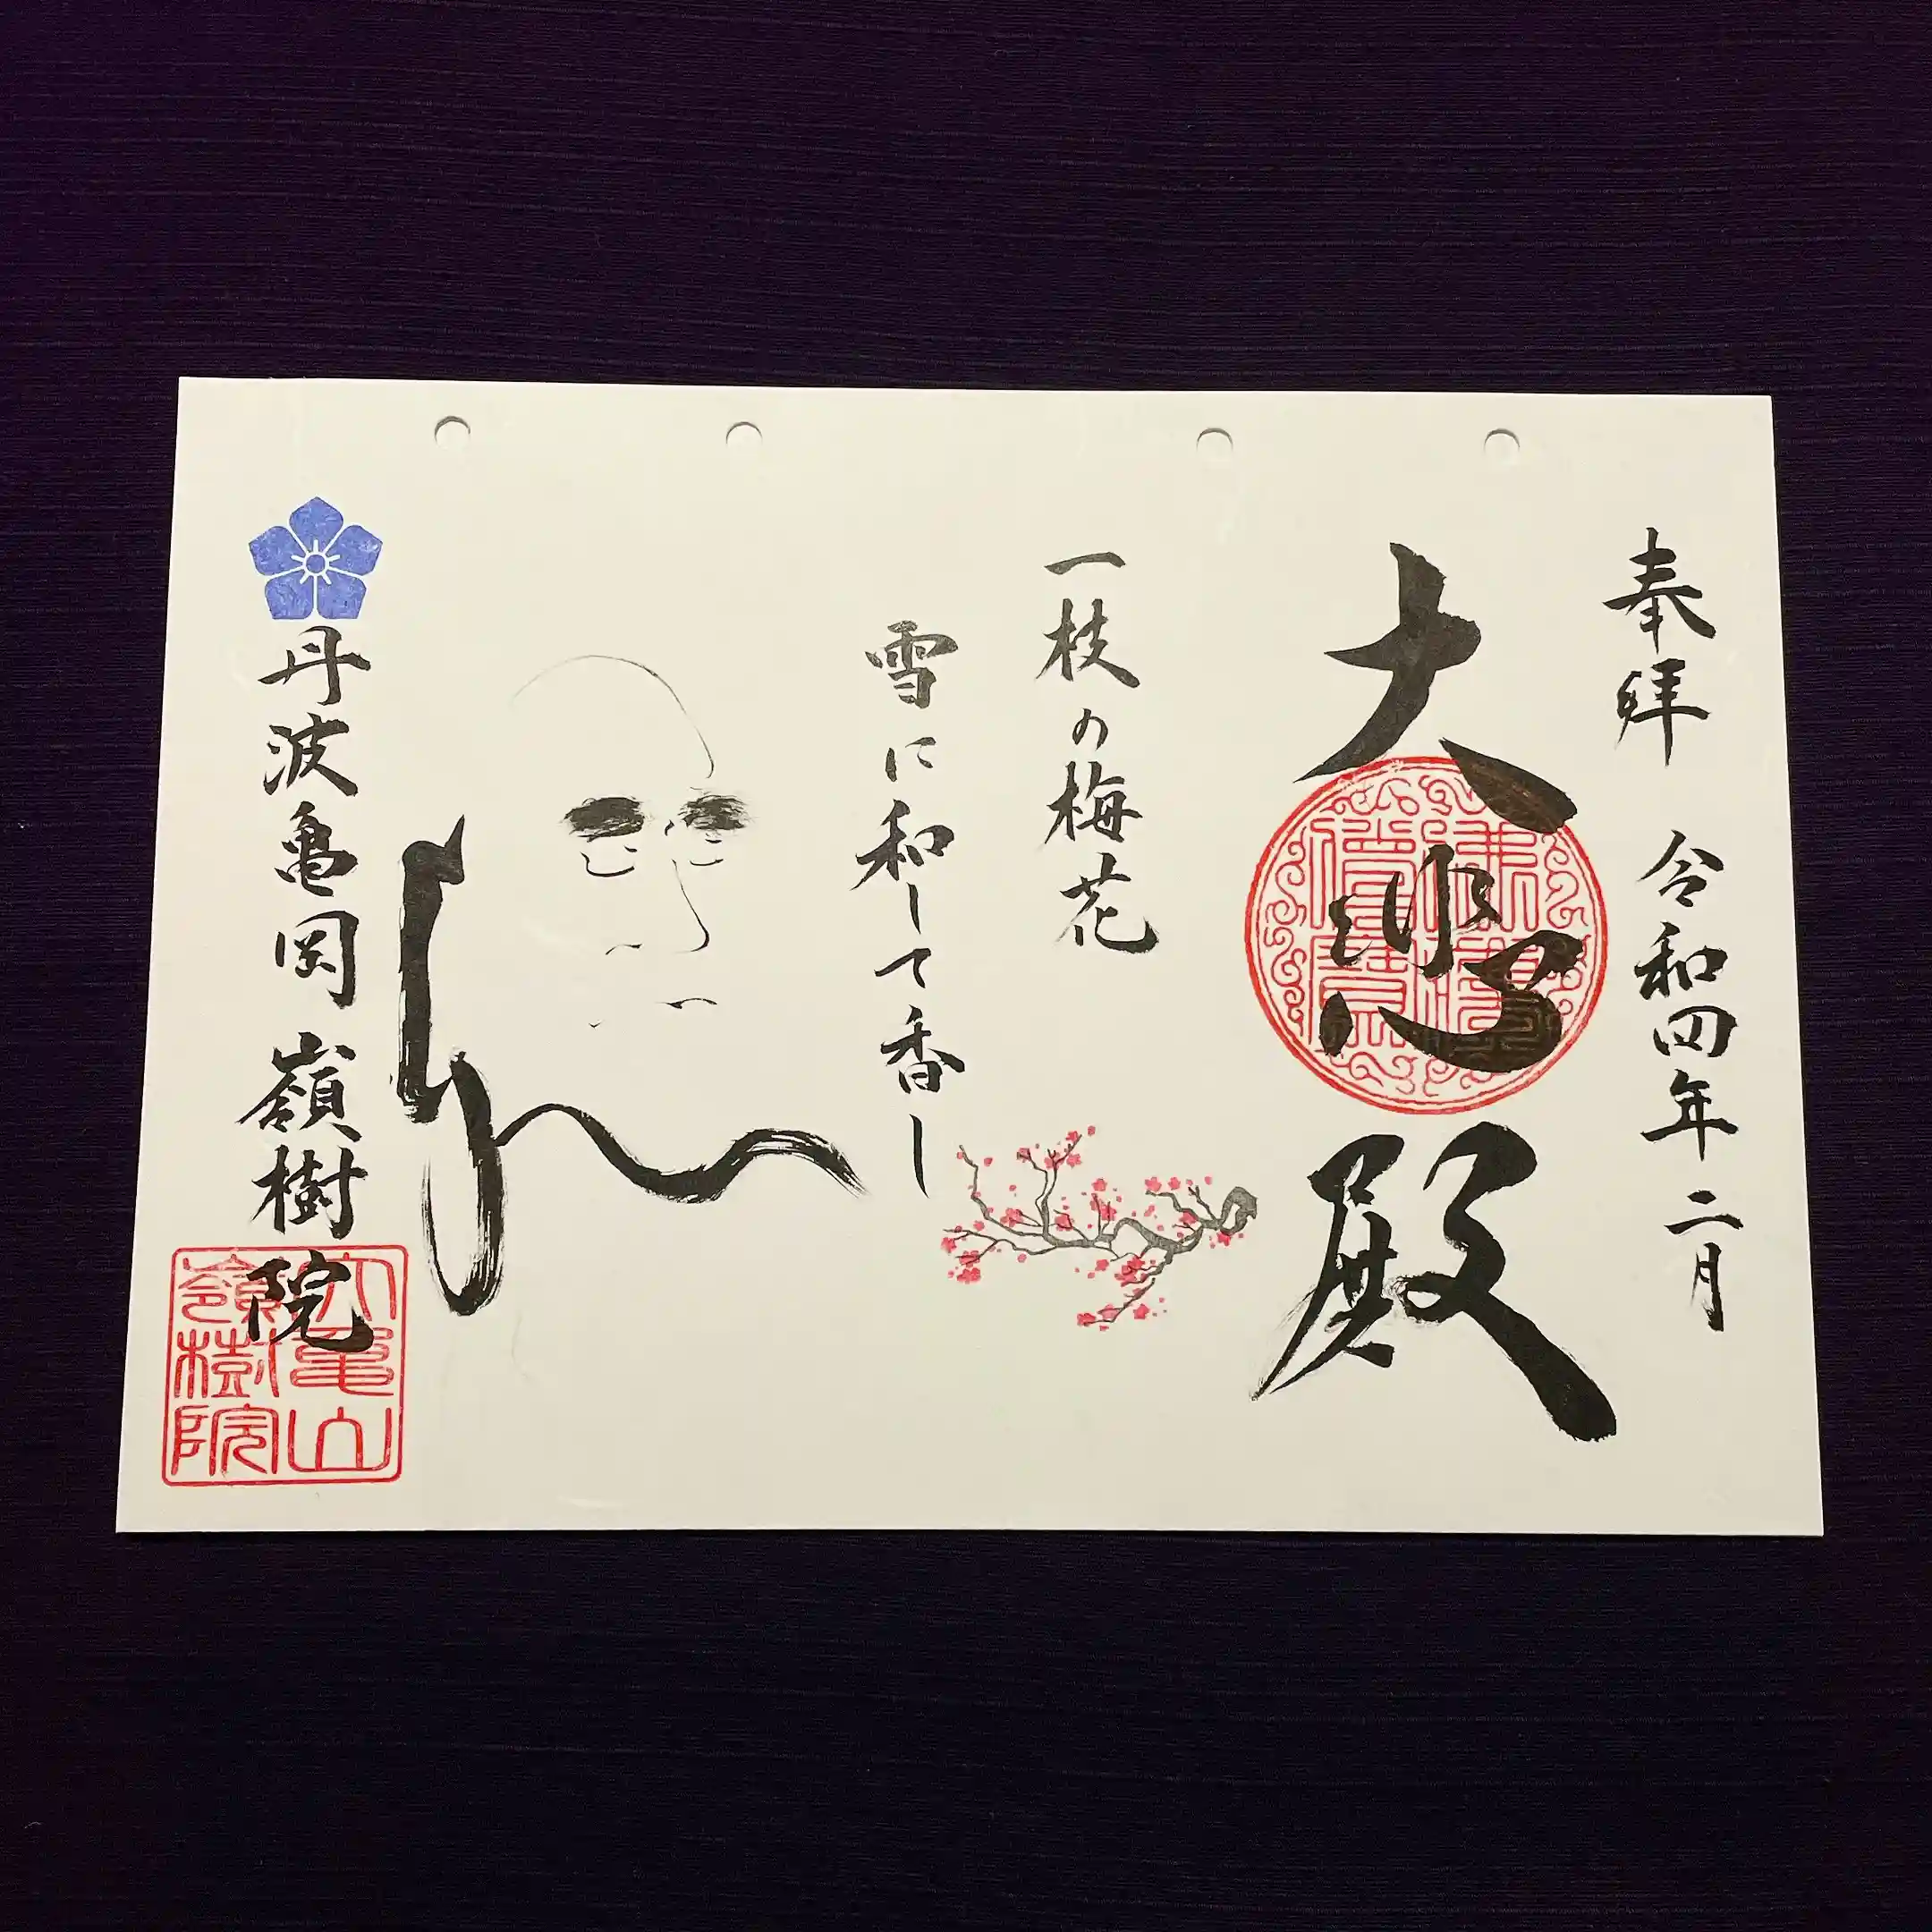 奉拝 令和四年二月
大悲殿
一枝の梅花
雪に和して香し
丹波亀岡 嶺樹院
亀山
嶺樹院